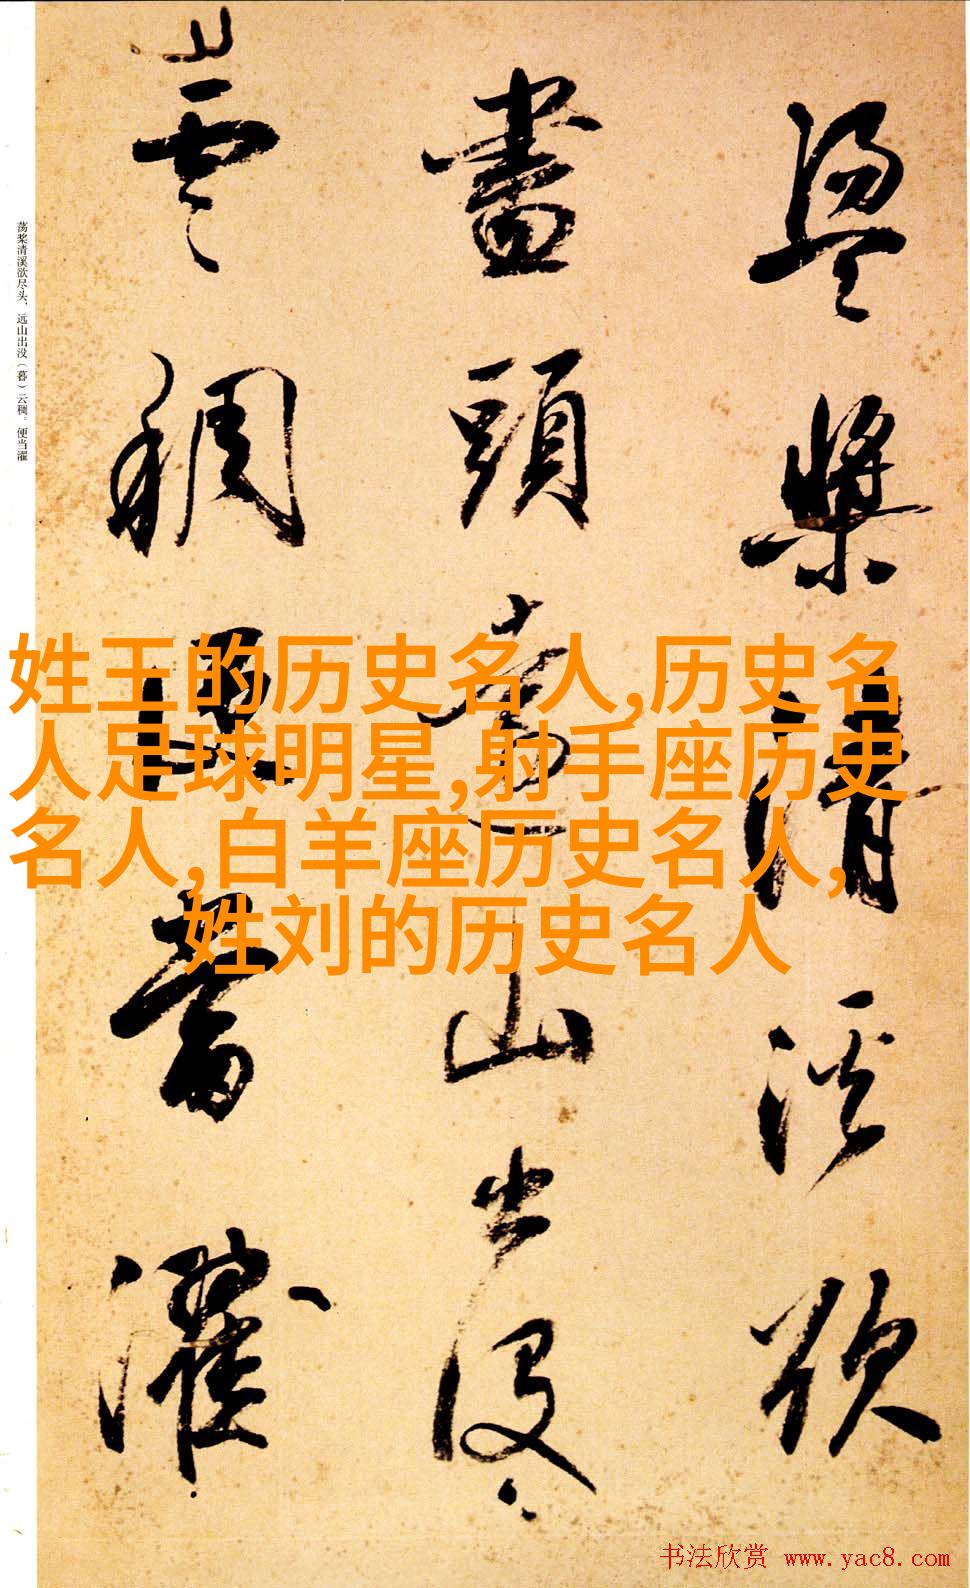 盪槳清溪欲
盡頭遠山出没
雲稠便當濯
荡桨清溪欲尽头，远山出没（暮）云稠。便当濯
姓王的历史名人,历史名
人足球明星,射手座历史
名人,白羊座历史名人,
姓刘的历史名人
书法欣赏 www.yac8.com